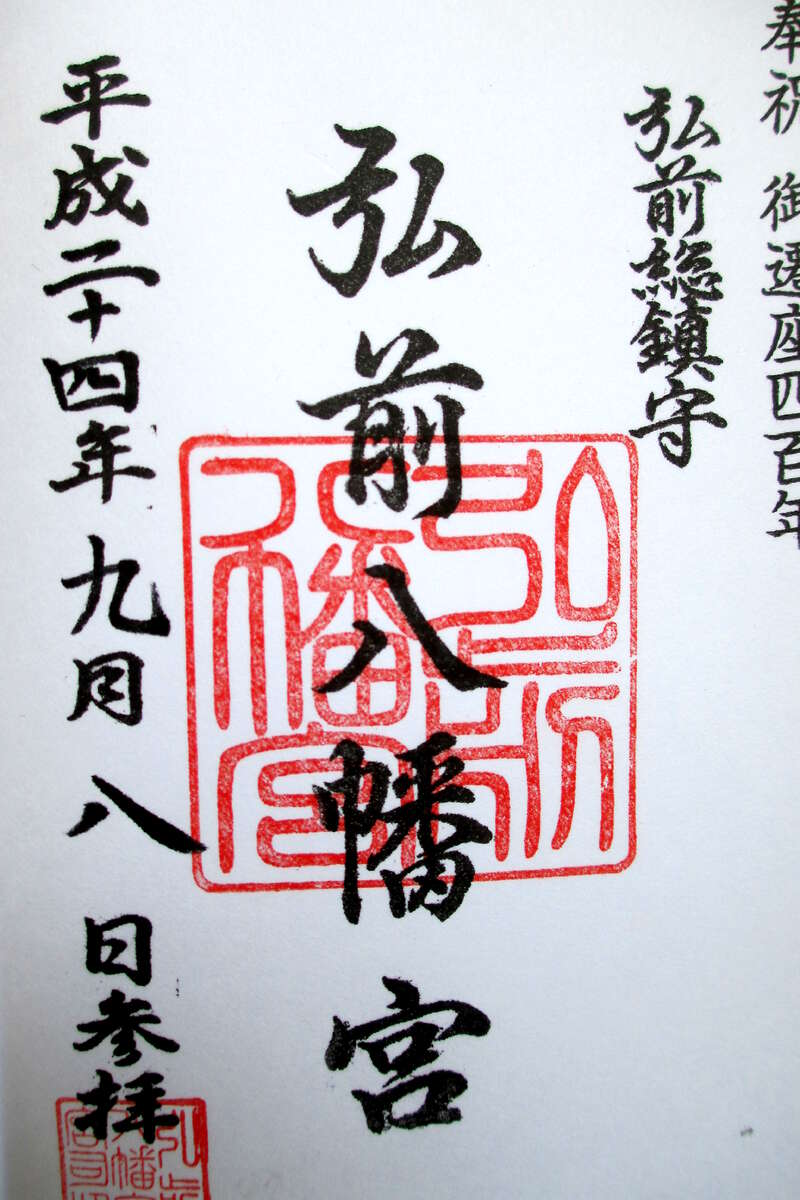 奉祝 御遷座四百年
弘前総鎮守
弘前八幡宮
平成二十四年九月八日参拝